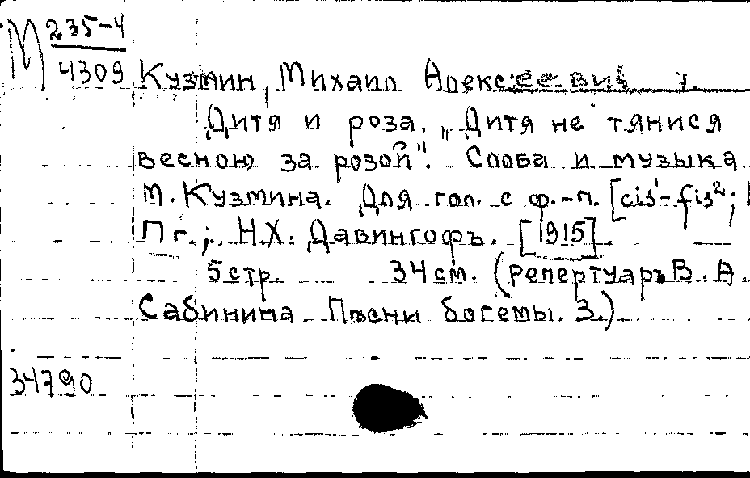 М 235-4
4309
Кузмин, Михаил Алексеевич
Дитя и роза. „Дитя не тянися
весною за розой". Слова и музыка
М. Кузмина. Для гол. с ф.-п. [cis¹-fis²;
Пг., Н.Х. Давингофъ. [1915]
5 стр. 34 см. (Репертуаръ В. А.
Сабинина Пѣсни богемы. 3.)
34790